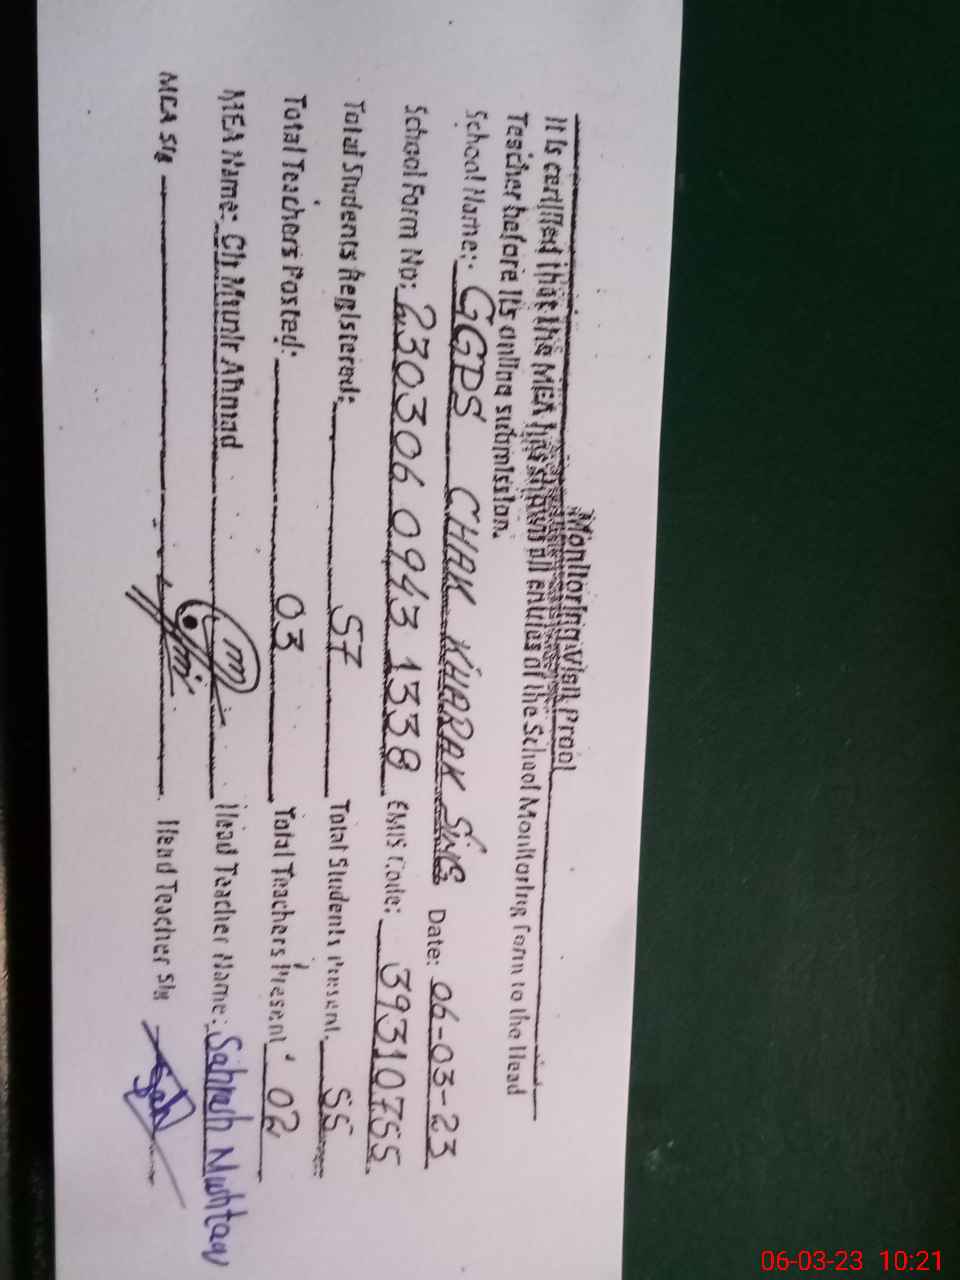 Monitoring Visit Proof
It is certified that the MEA has shown all entries of the School Monitoring Form to the Head
Teacher before its online submission.
School Name: GGPS CHAK KHARAK SING Date: 06-03-23
School Form No: 230306 0943 1338 EMIS Code: 39310755
Total Students Registered: 57 Total Students Present. 55
Total Teachers Posted: 03 Total Teachers Present 02
MEA Name: Ch Munir Ahmad Head Teacher Name: Sahresh Mushtaq
MEA Sig Head Teacher Sig
06-03-23 10:21